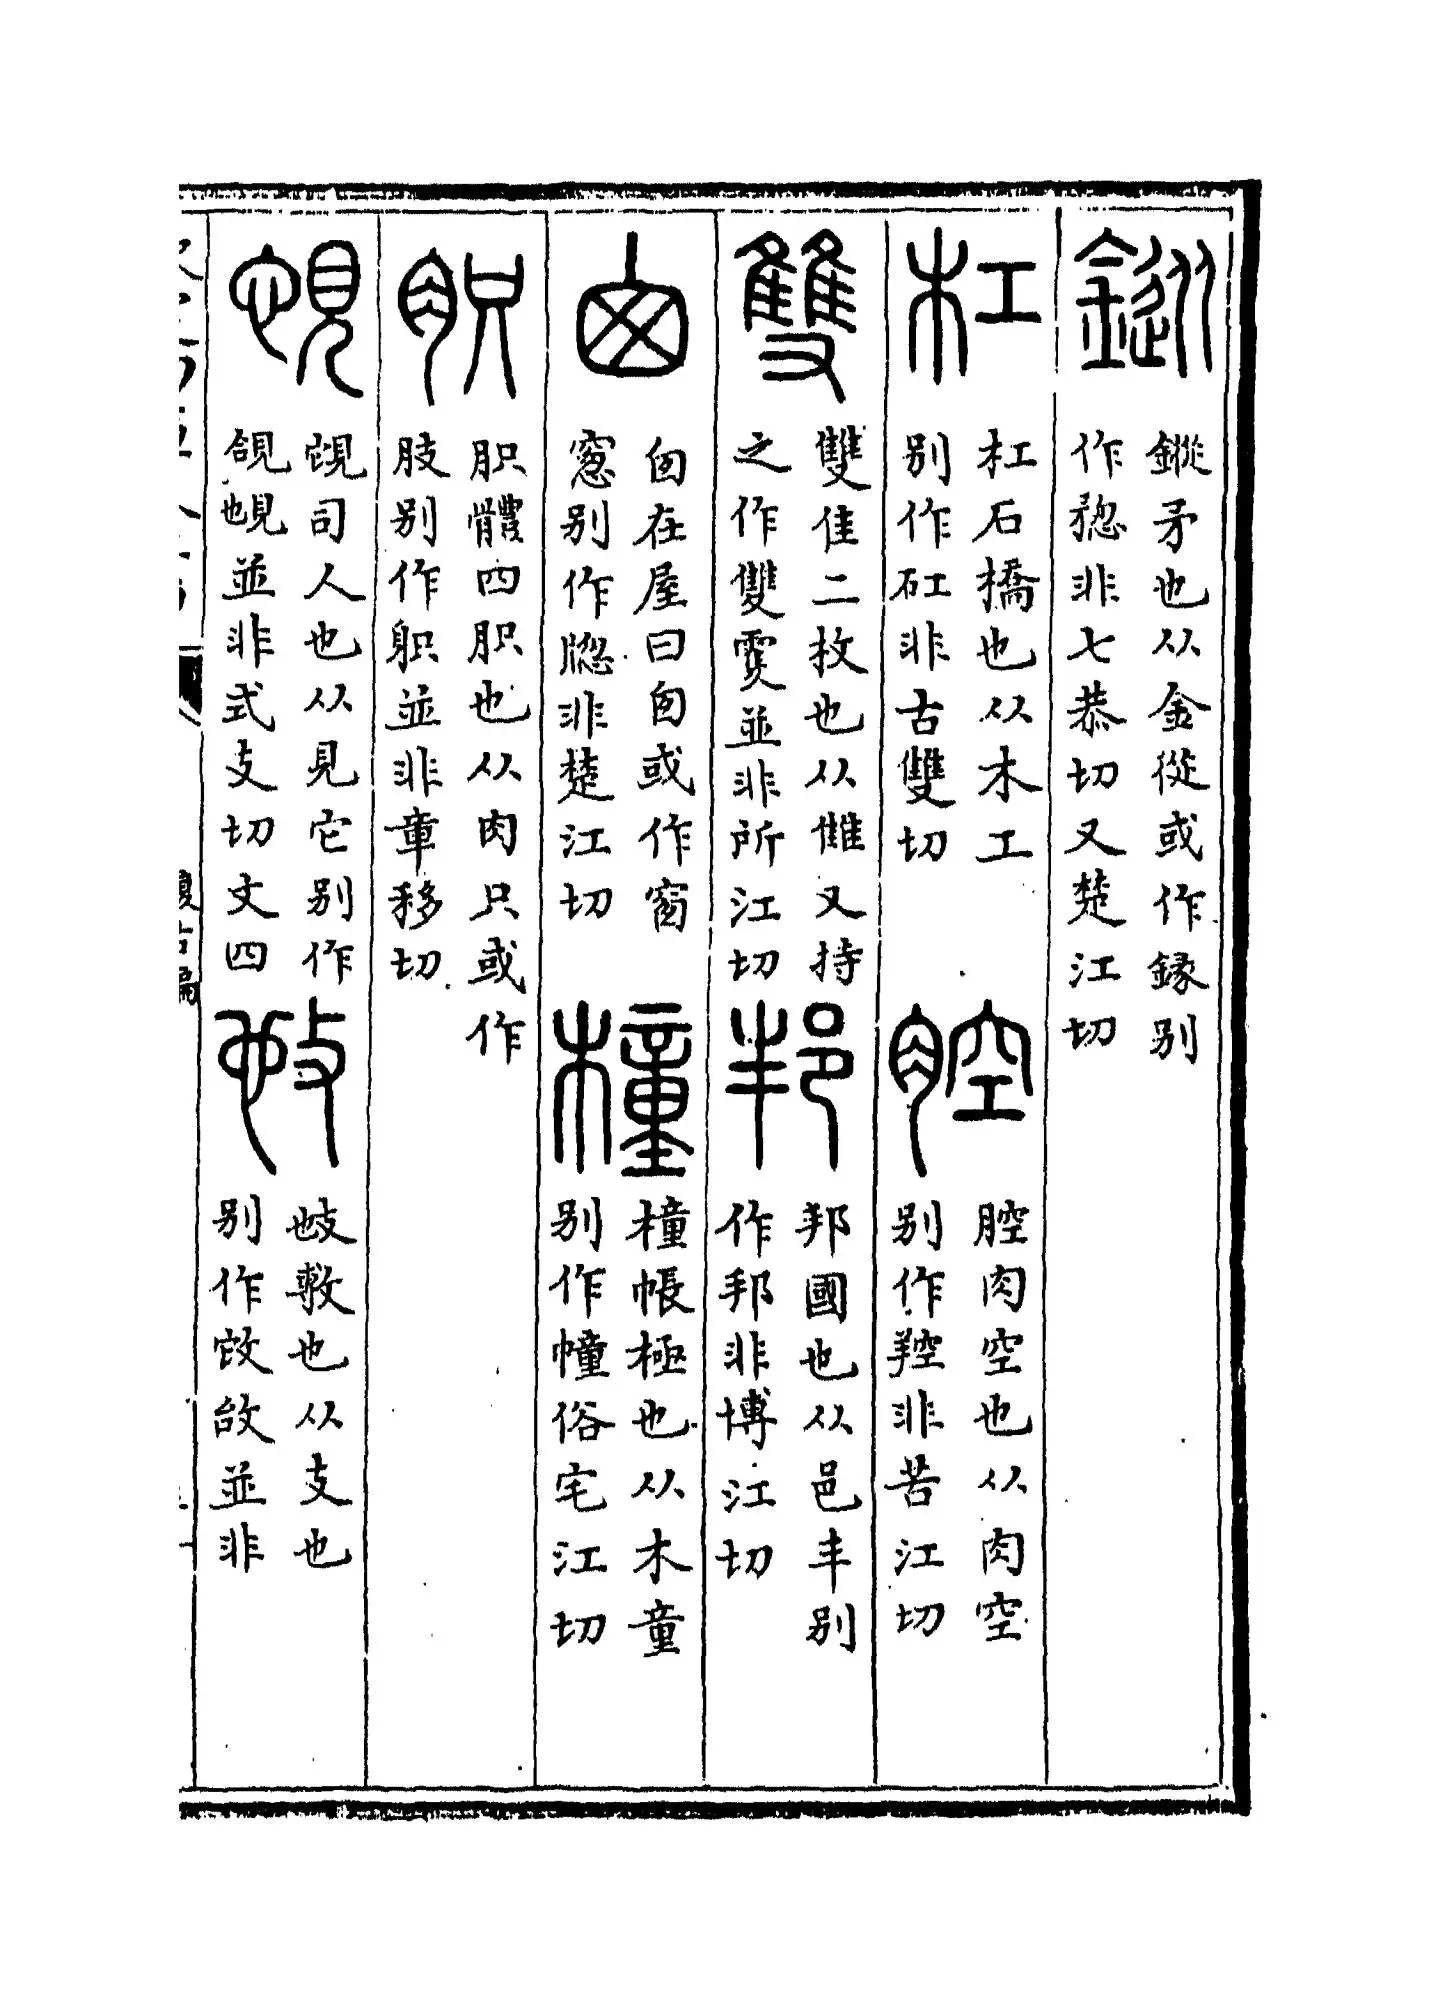 鏦
鏦矛也从金從或作錄别
作䅹非七恭切又楚江切
杠
杠石橋也从木工
别作矼非古雙切
腔
腔肉空也从肉空
别作羫非苦江切
雙
雙隹二枚也从雔又持
之作雙䨇並非所江切
邦
邦國也从邑丰别
作邦非博江切
囱
囱在屋曰囱或作窗
窻别作牎非楚江切
橦
橦帳極也从木童
别作幢俗宅江切
胑
胑體四胑也从肉只或作
肢别作躾並非章移切
覗
覗司人也从見它别作
並非式支切文四
𢻱
𢻱敷也从支也
别作並非
復古編